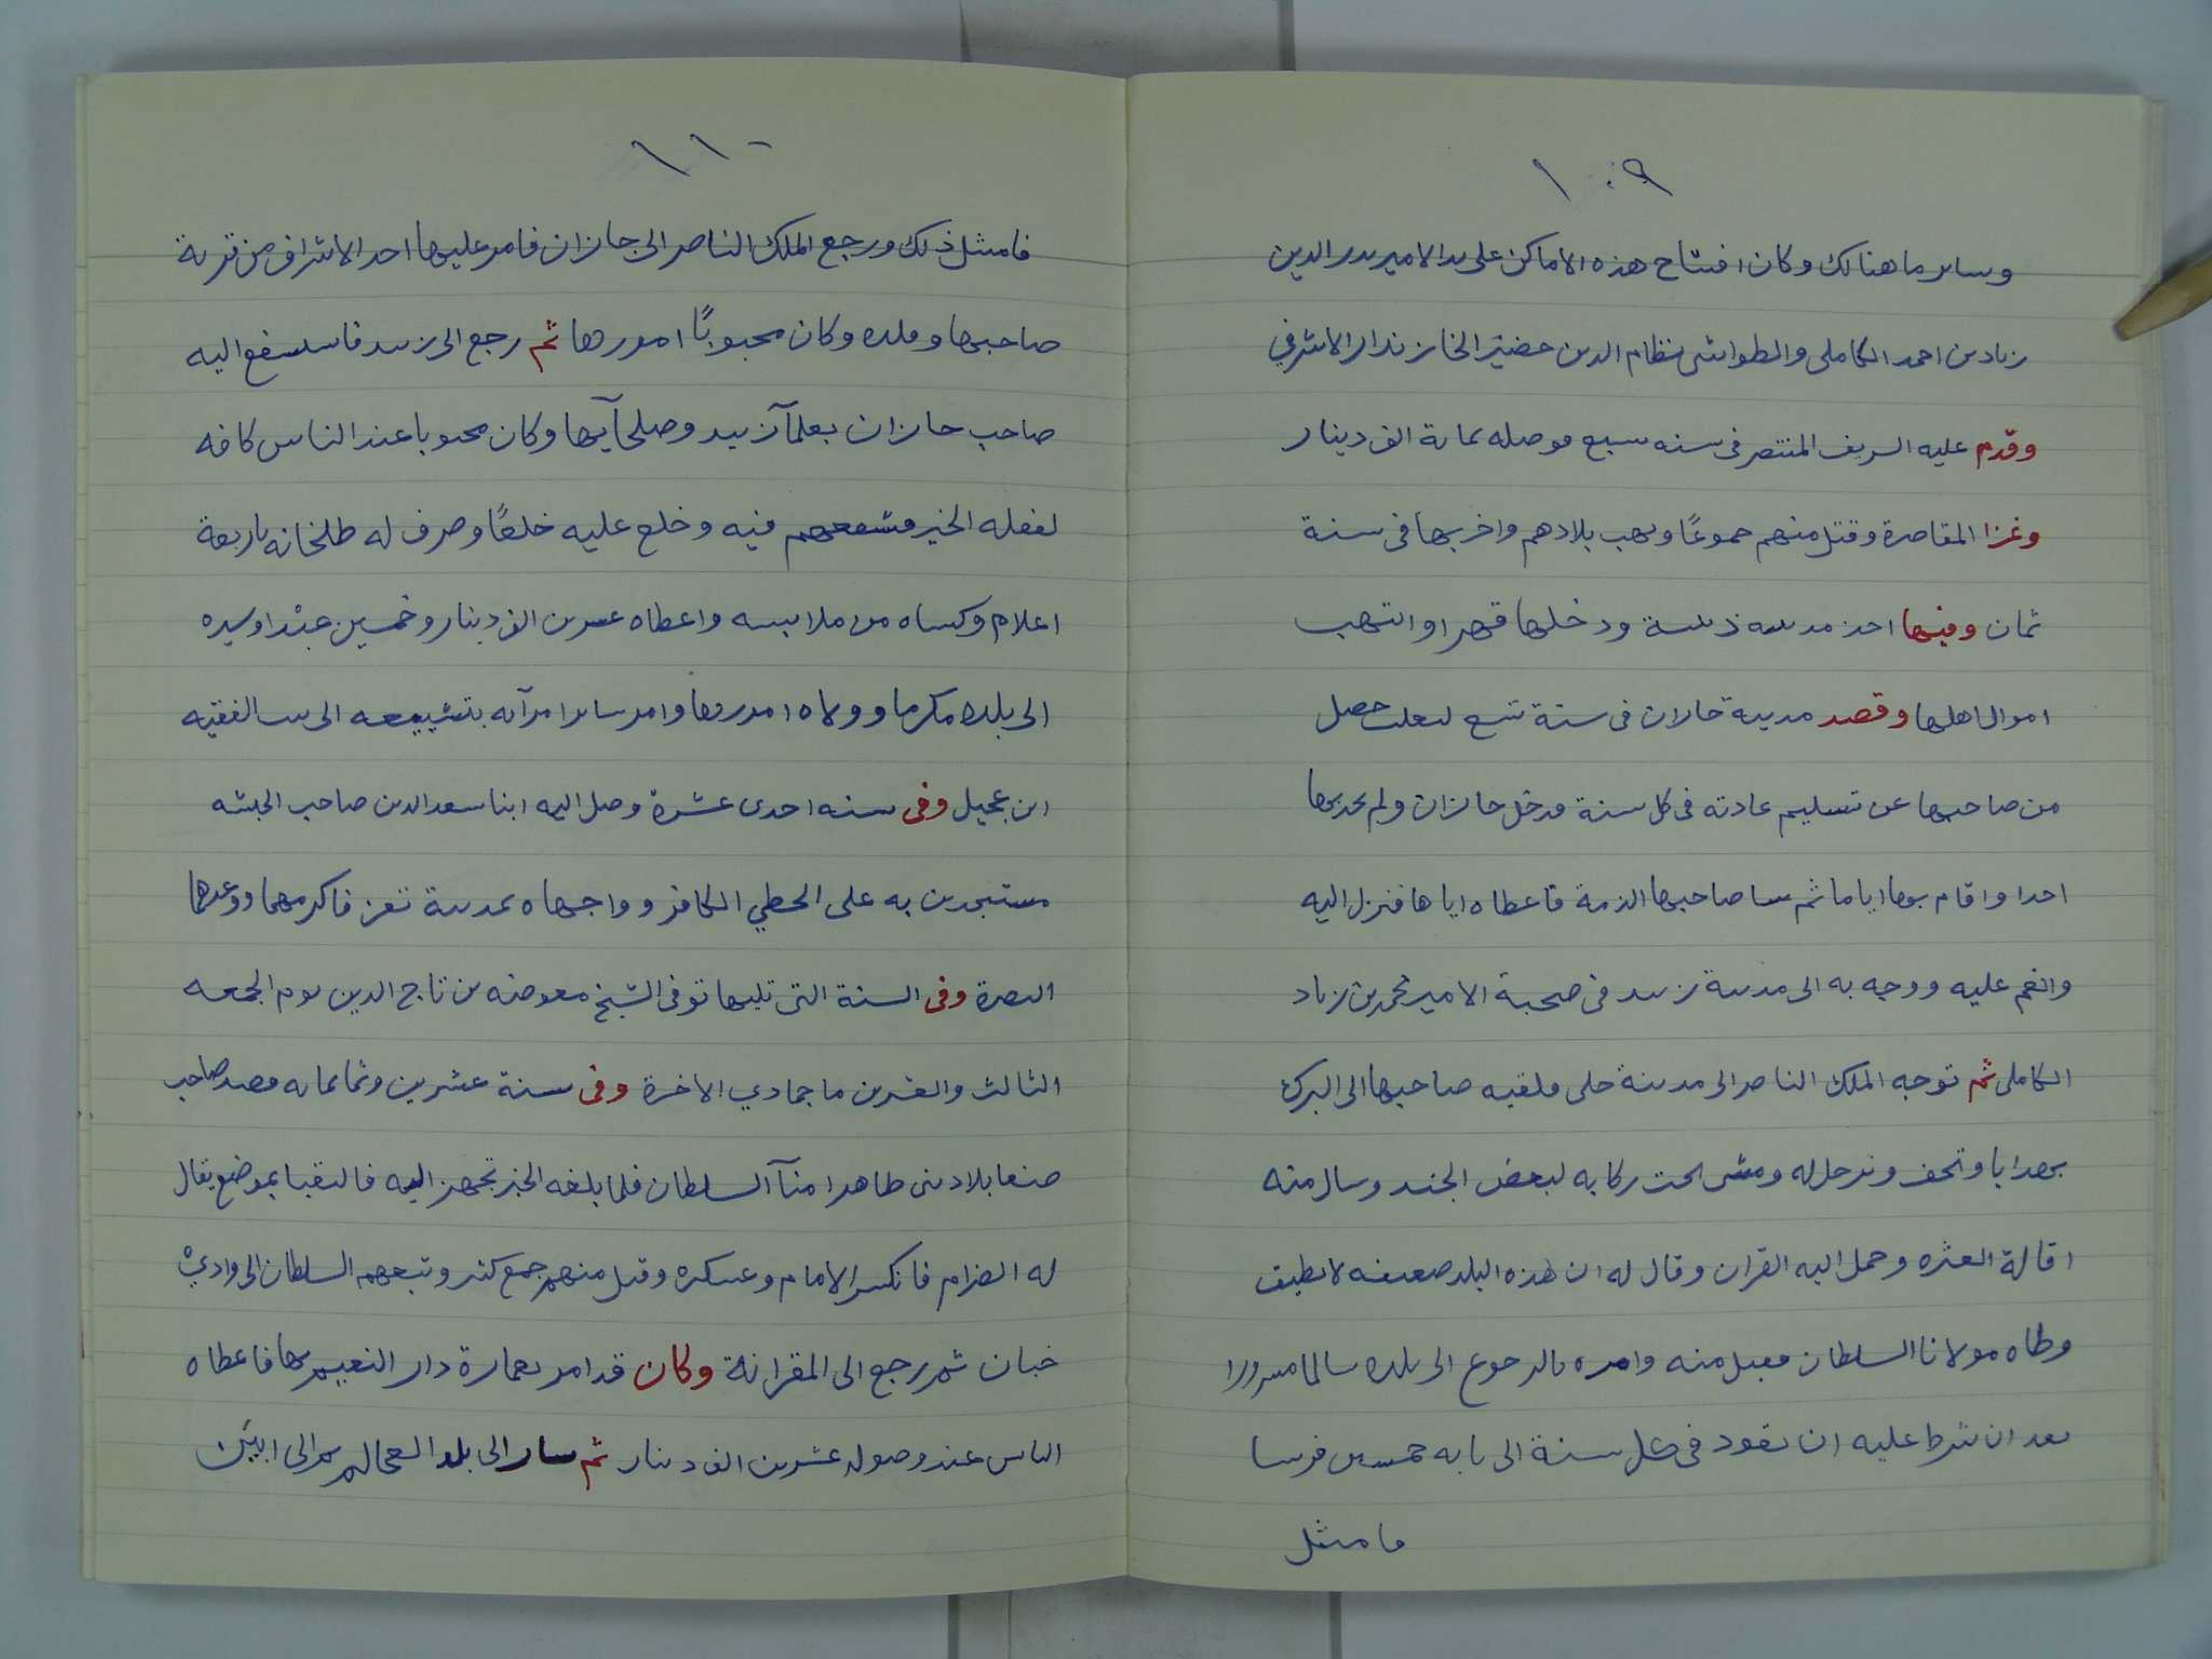 ١٠٩
وساير ما هنالك وكان افتتاح هذه الاماكن على يد الامير بدر الدين
زياد بن احمد الكاملي والطواشي نظام الدين خضير الخازندار الاشرفي
وقدم عليه الشريف المنتصر في سنه سبع فوصله بماية الف دينار
وغزا المقاصرة وقتل منهم جموعًا ونهب بلادهم واخربها في سنة
ثمان وفيها اخذ مدينه ودخلها قهرا وانتهب
اموال اهلها وقصد مدينة جازان في سنة تسع حصل
من صاحبها عن تسليم عادته في كل سنة فدخل جازان ولم يجد بها
احدا واقام بها اياما ثم صاحبها الذمة فاعطاه اياها فنزل اليه
وانعم عليه ووجه به الى مدينة زبيد في صحبة الامير محمد بن زياد
الكاملي ثم توجه الملك الناصر الى مدينة حلي فلقيه صاحبها الى البرك
بهدايا وتحف وترجل له ومشى تحت ركابه لبعض الجند وسال منه
اقالة العثره وحمل اليه القران وقال له ان هذه البلد ضعيفه لا تطيق
وطاه مولانا السلطان فقبل منه وامره بالرجوع الى بلده سالما مسرورا
بعد ان شرط عليه ان يقود في كل سنة الى بابه خمسين فرسا
فامتثل
١١٠
فامتثل ذلك ورجع الملك الناصر الى جازان فامر عليها احد الاشراف من قرية
صاحبها وبلده وكان محبوبًا امورها ثم رجع الى زبيد فاستشفع اليه
صاحب جازان بعلمآ زبيد وصلحآيها وكان محبوبا عند الناس كافه
لفعله الخير فشفعهم فيه وخلع عليه خلعًا وصرف له طبلخانه باربعة
اعلام وكساه من ملابسه واعطاه عشرين الف دينار وخمسين عبدا وسيره
الى بلده مكرما وولاه امورها وامر ساير امرآئه بتشييعه الى بيت الفقيه
ابن عجيل وفي سنه احدى عشرة وصل اليه ابنا سعد الدين صاحب الحبشه
مستنجدين به على الحطي الكافر وواجهاه بمدينة تعز فاكرمهما ووعدهما
النصرة وفي السنة التي تليها توفي الشيخ معوضه بن تاج الدين يوم الجمعه
الثالث والعشرين ما جمادي الاخرة وفي سنة عشرين وثمانمايه قصد صاحب
صنعا بلاد بني طاهر امنآ السلطان فلما بلغه الخبر تجهز اليه فالتقيا بموضع يقال
له الصرام فانكسر الامام وعسكره وقتل منهم جمع كثير وتبعهم السلطان الى وادي
خبان ثم رجع الى المقرانة وكان قد امر بعمارة دار النعيم بها فاعطاه
الناس عند وصوله عشرين الف دينار ثم سار الى بلد العجالم ثم الى ابين